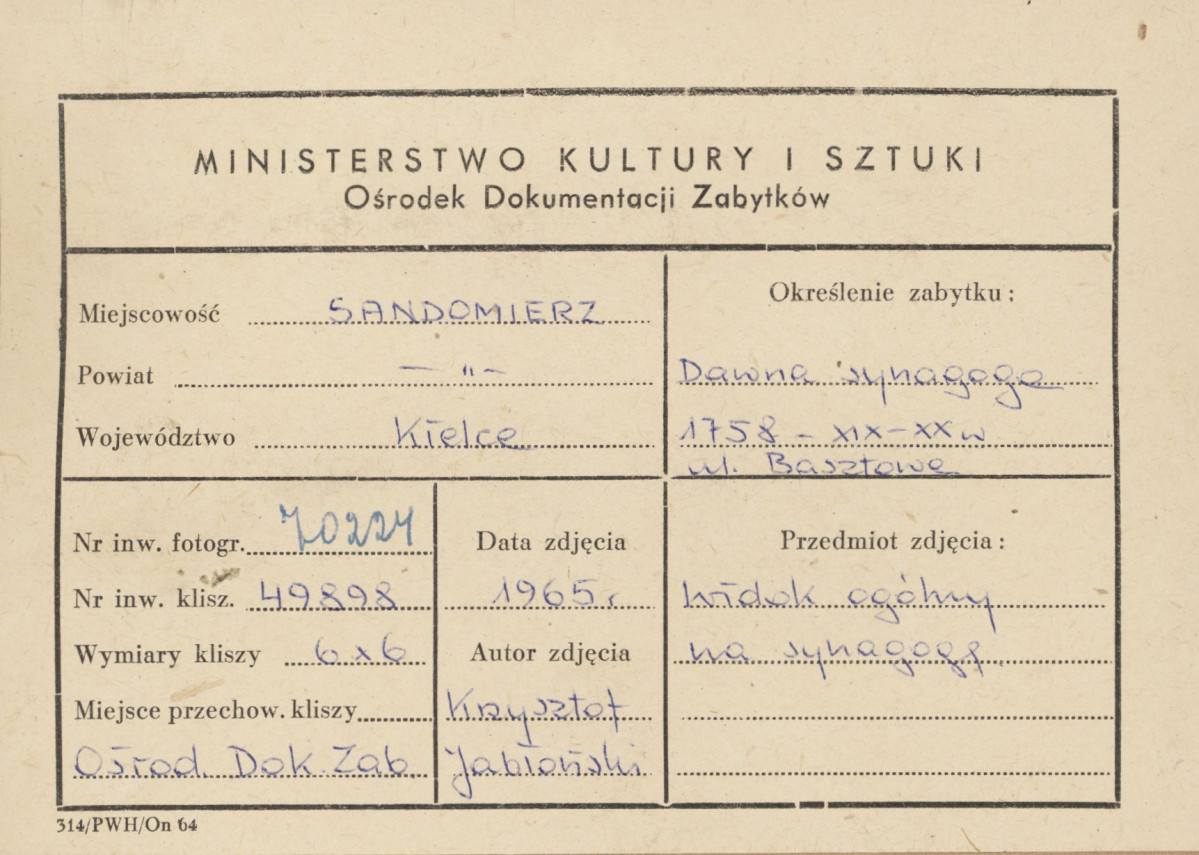 MINISTERSTWO KULTURY I SZTUKI
Ośrodek Dokumentacji Zabytków
Miejscowość SANDOMIERZ
Powiat — " —
Województwo Kielce
Określenie zabytku:
Dawna synagoga
1758 - XIX-XX w
ul. Basztowa
Nr inw. fotogr. 70224
Nr inw. klisz. 49898
Wymiary kliszy 6 x 6
Miejsce przechow. kliszy
Ośrod. Dok Zab.
Data zdjęcia
1965 r.
Autor zdjęcia
Krzysztof
Jabłoński
Przedmiot zdjęcia:
Widok ogólny
na synagogę.
314/PWH/On 64